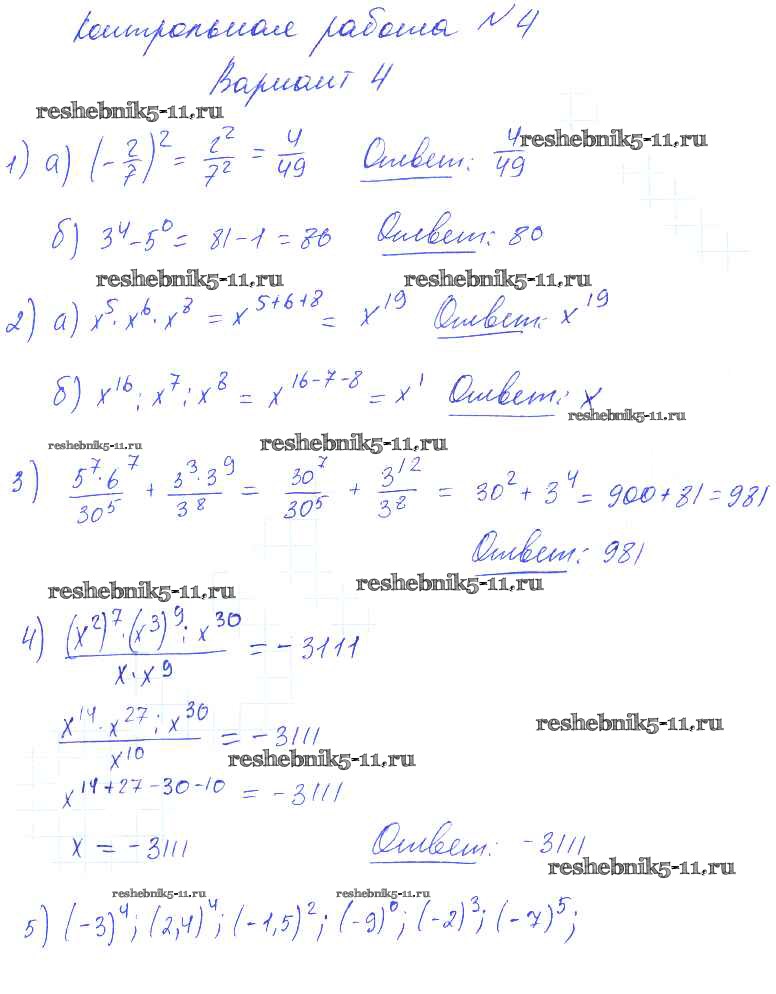 Контрольная работа №4
Вариант 4
reshebnik5-11.ru
1) а) (-2/7)^2 = 2^2/7^2 = 4/49 Ответ: 4/49
reshebnik5-11.ru
б) 3^4 - 5^0 = 81 - 1 = 80 Ответ: 80
reshebnik5-11.ru reshebnik5-11.ru
2) а) x^5 · x^6 · x^8 = x^(5+6+8) = x^19 Ответ: x^19
б) x^16 : x^7 : x^8 = x^(16-7-8) = x^1 Ответ: x
reshebnik5-11.ru
reshebnik5-11.ru reshebnik5-11.ru
3) (5^7 · 6^7)/30^5 + (3^3 · 3^9)/3^8 = 30^7/30^5 + 3^12/3^8 = 30^2 + 3^4 = 900 + 81 = 981
Ответ: 981
reshebnik5-11.ru reshebnik5-11.ru
4) ((x^2)^7 · (x^3)^9 : x^30)/(x · x^9) = -3111
(x^14 · x^27 : x^30)/x^10 = -3111
reshebnik5-11.ru
reshebnik5-11.ru
x^(14+27-30-10) = -3111
x = -3111 Ответ: -3111
reshebnik5-11.ru
reshebnik5-11.ru reshebnik5-11.ru
5) (-3)^4; (2,4)^4; (-1,5)^2; (-9)^0; (-2)^3; (-7)^5;